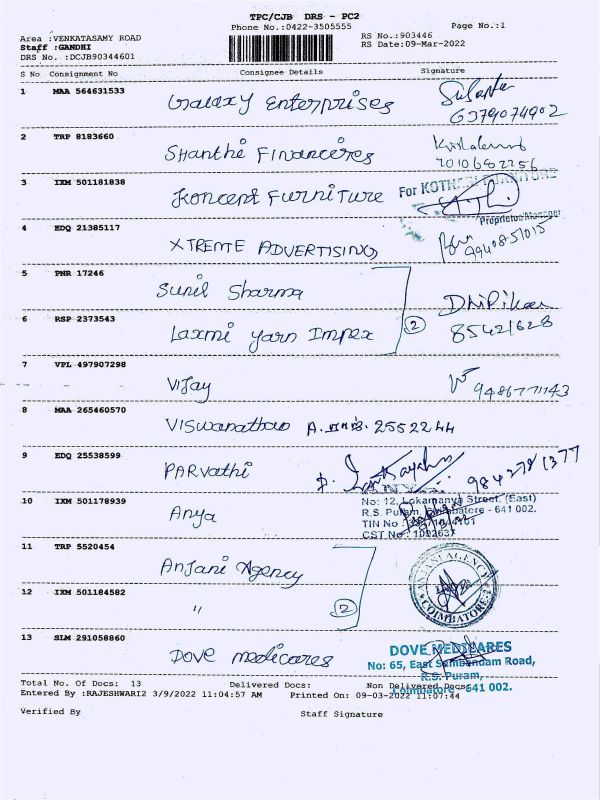 TPC/CJB DRS - PC2
Phone No.:0422-3505555 Page No.:1
Area :VENKATASAMY ROAD RS No.:903446
Staff :GANDHI RS Date:09-Mar-2022
DRS No. :DCJB90344601
S No Consignment No Consignee Details Signature
1 MAA 564631533 Galaxy Enterprises
6379074902
2 TRP 8183660 Shanthi Financieres
3 IXM 501181838 Koncept Furniture For
Proprietor/Manager
4 EDQ 21385117 XTREME ADVERTISING
9940851015
5 PNR 17246 Sunil Sharma
6 RSP 2373543 Laxmi Yarn Impex 2
85421628
7 VPL 497907298 Vijay
8 MAA 265460570 Viswanathan 2552244
9 EDQ 25538599 Parvathi
10 IXM 501178939 Anya
No: 12, Lokamanya Street, (East)
R.S. Puram, Coimbatore - 641 002.
TIN No
CST No 1092637
11 TRP 5520454 Anjani Agency
ANJANI AGENCY
COIMBATORE
12 IXM 501184582 " 2
13 SLM 291058860 Dove medicares
DOVE MEDICARES
No: 65, East Sambandam Road,
R.S. Puram,
Coimbatore - 641 002.
Total No. Of Docs: 13 Delivered Docs: Non Delivered Docs:
Entered By :RAJESHWARI2 3/9/2022 11:04:57 AM Printed On: 09-03-2022 11:07:44
Verified By Staff Signature